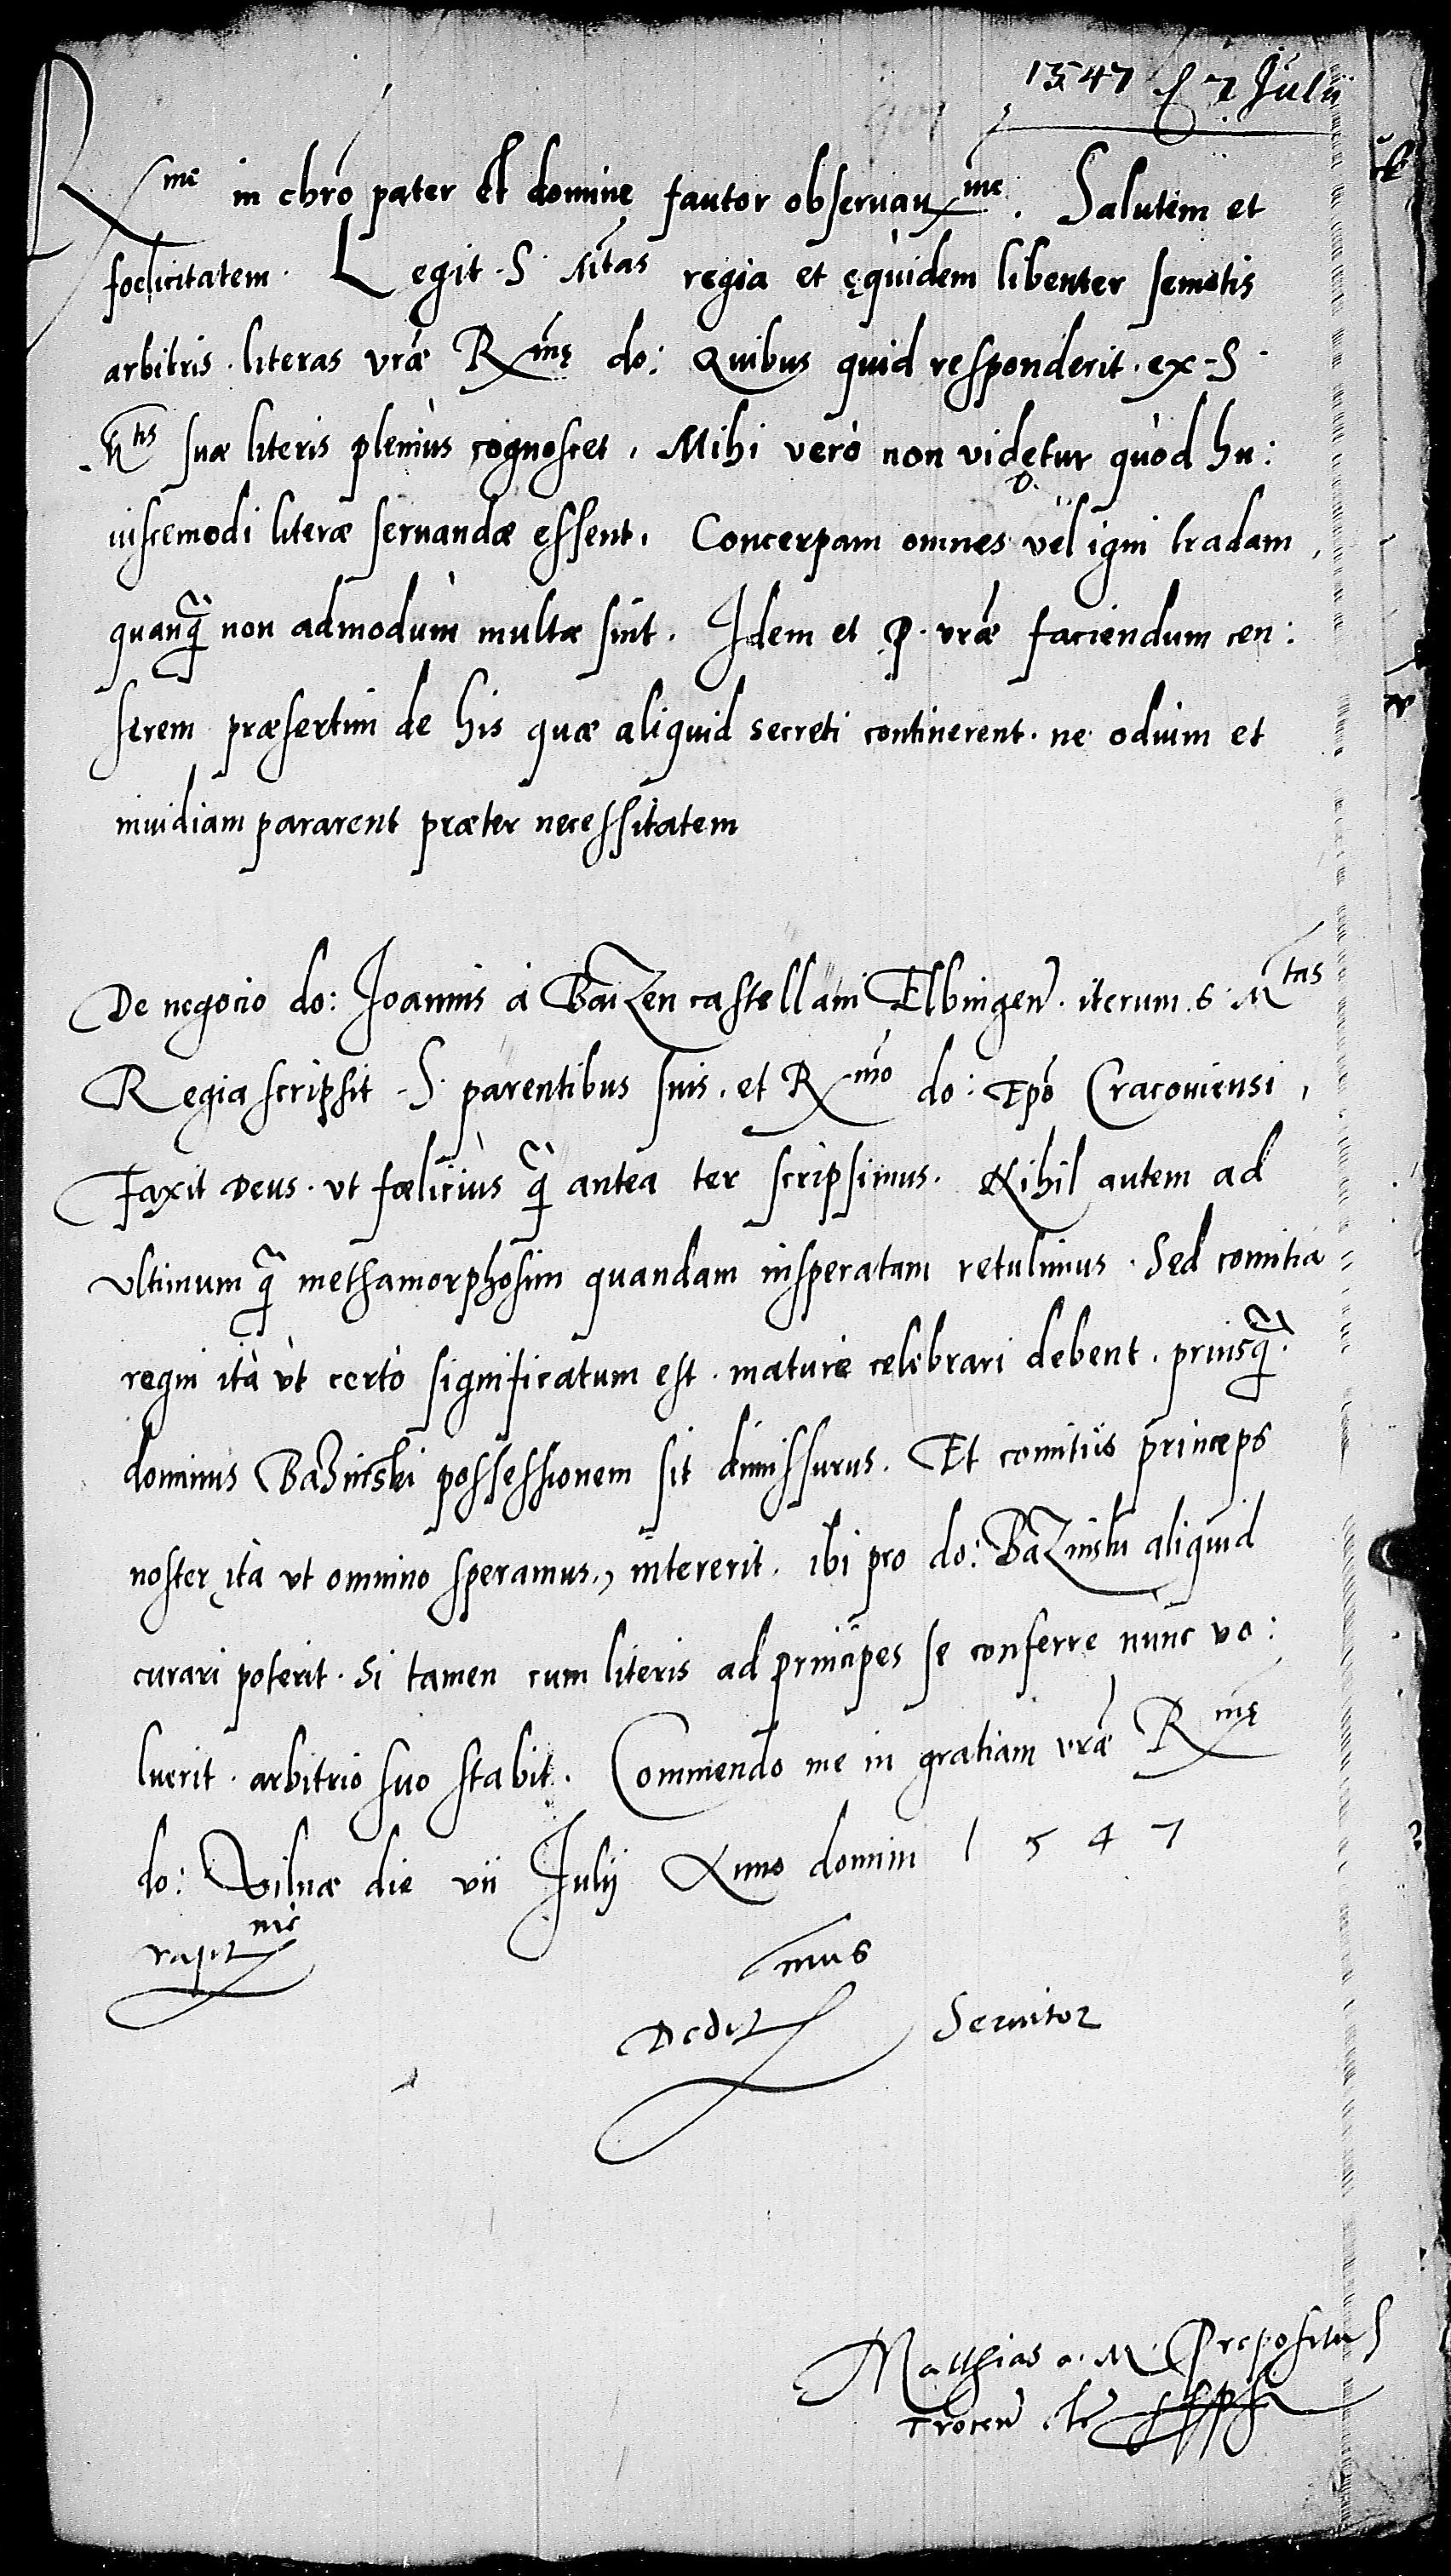 1547 7 Julii
R me in chro pater et domine fautor obseruan me. Salutem et
foelicitatem. Legit S. Mtas regia et equidem libenter semotis
arbitris literas vrae Rmę do: Quibus quid responderit ex S
Mtis suae literis plenius cognoscet. Mihi verò non videtur quòd hu:
iuscemodi literae seruandae essent. Concerpam omnes vel igni tradam,
quanq̃ non admodùm multae sint. Idem et P. vrae faciendum cen:
serem praesertim de his quae aliquid secreti continerent. ne odium et
inuidiam pararent praeter necessitatem
De negocio do: Joannis à Baizen castellani Elbingen̄. iterum S. Mtas
Regia scripsit S. parentibus suis. et Rmo do: Epo Cracouiensi,
Faxit Deus. vt foelicius q̃ antea ter scripsimus. Nihil autem ad
vltimum q̃ methamorphosim quandam insperatam retulimus. Sed comitia
regni ità vt certò significatum est. maturè celebrari debent. priusq̃.
dominus Bazinski possessionem sit dimissurus. Et comitiis princeps
noster ita vt omnino speramus, intererit. ibi pro do: Bazinski aliquid
curari poterit. Si tamen cum literis ad principes se conferre nunc vo:
luerit. arbitrio suo stabit. Commendo me in gratiam vrae Rmę
do: Vilnae die vii Julij Anno domini 1547
rapt me
Dedit mus Seruitor
Matthias a. M. Prepositus
Trocen̄